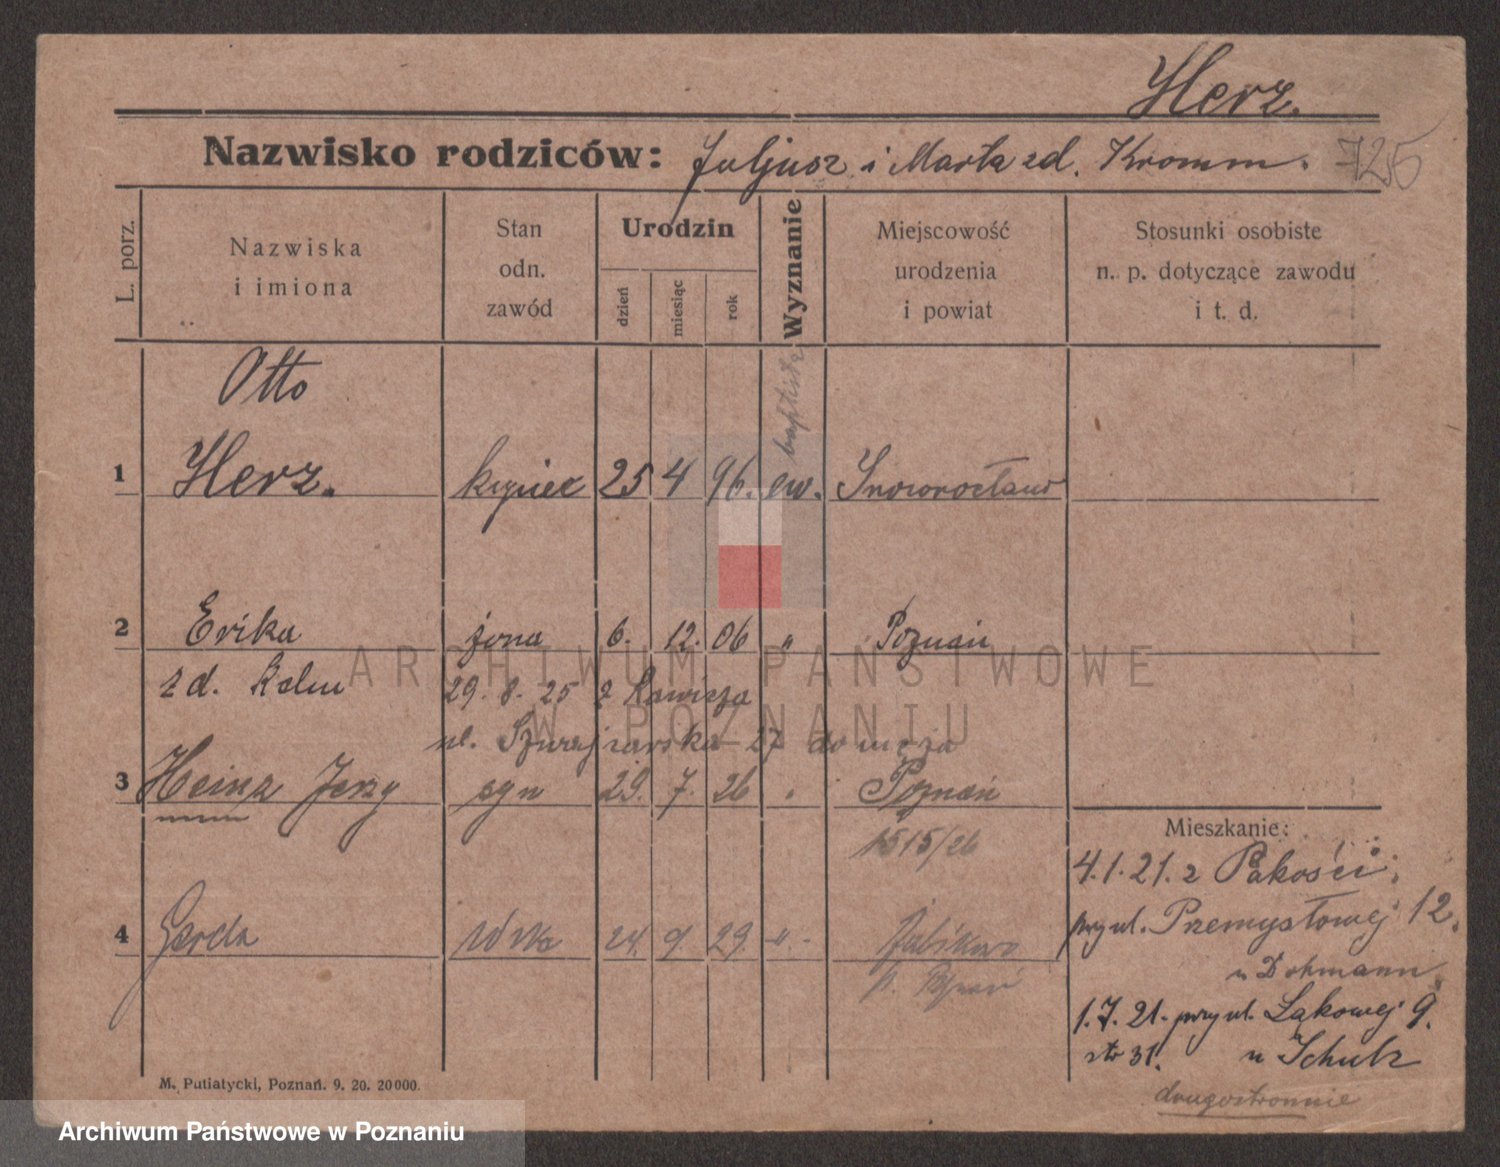 Herz.
Nazwisko rodziców: Juljusz i Marta zd. Kromm. 725
L. porz.
Nazwiska
i imiona
Stan
odn.
zawód
Urodzin
dzień
miesiąc
rok
Wyznanie
Miejscowość
urodzenia
i powiat
Stosunki osobiste
n. p. dotyczące zawodu
i t. d.
Otto
baptista
1 Herz. kupiec 25 4 96. ew. Inowrocław
2 Erika żona 6. 12. 06 " Poznań
zd. 29. 8. 25 z Rawicza
ul. 27 do męża
3 Heinz Jerzy syn 29. 7. 26 Poznań
1515/26
4 Gerda 24. 9 29 "
p. Poznań
Mieszkanie:
4.1.21. z Pakości,
przy ul. Przemysłowej 12.
u Dohmann
1.7.21. przy ul. Łąkowej 9.
str 31. u Schulz
drugostronnie
M. Putiatycki, Poznań. 9. 20. 20000.
ARCHIWUM PAŃSTWOWE
W POZNANIU
Archiwum Państwowe w Poznaniu